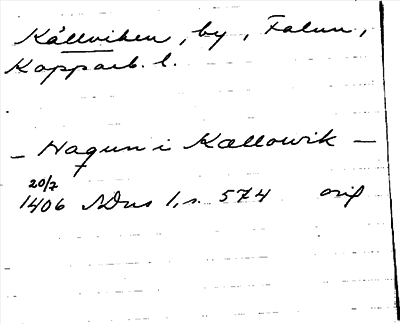 Källviken, by, Falun,
Kopparb. l.
– Haqun i Kællowik –
20/7
1406 NDns 1, s. 574 orig